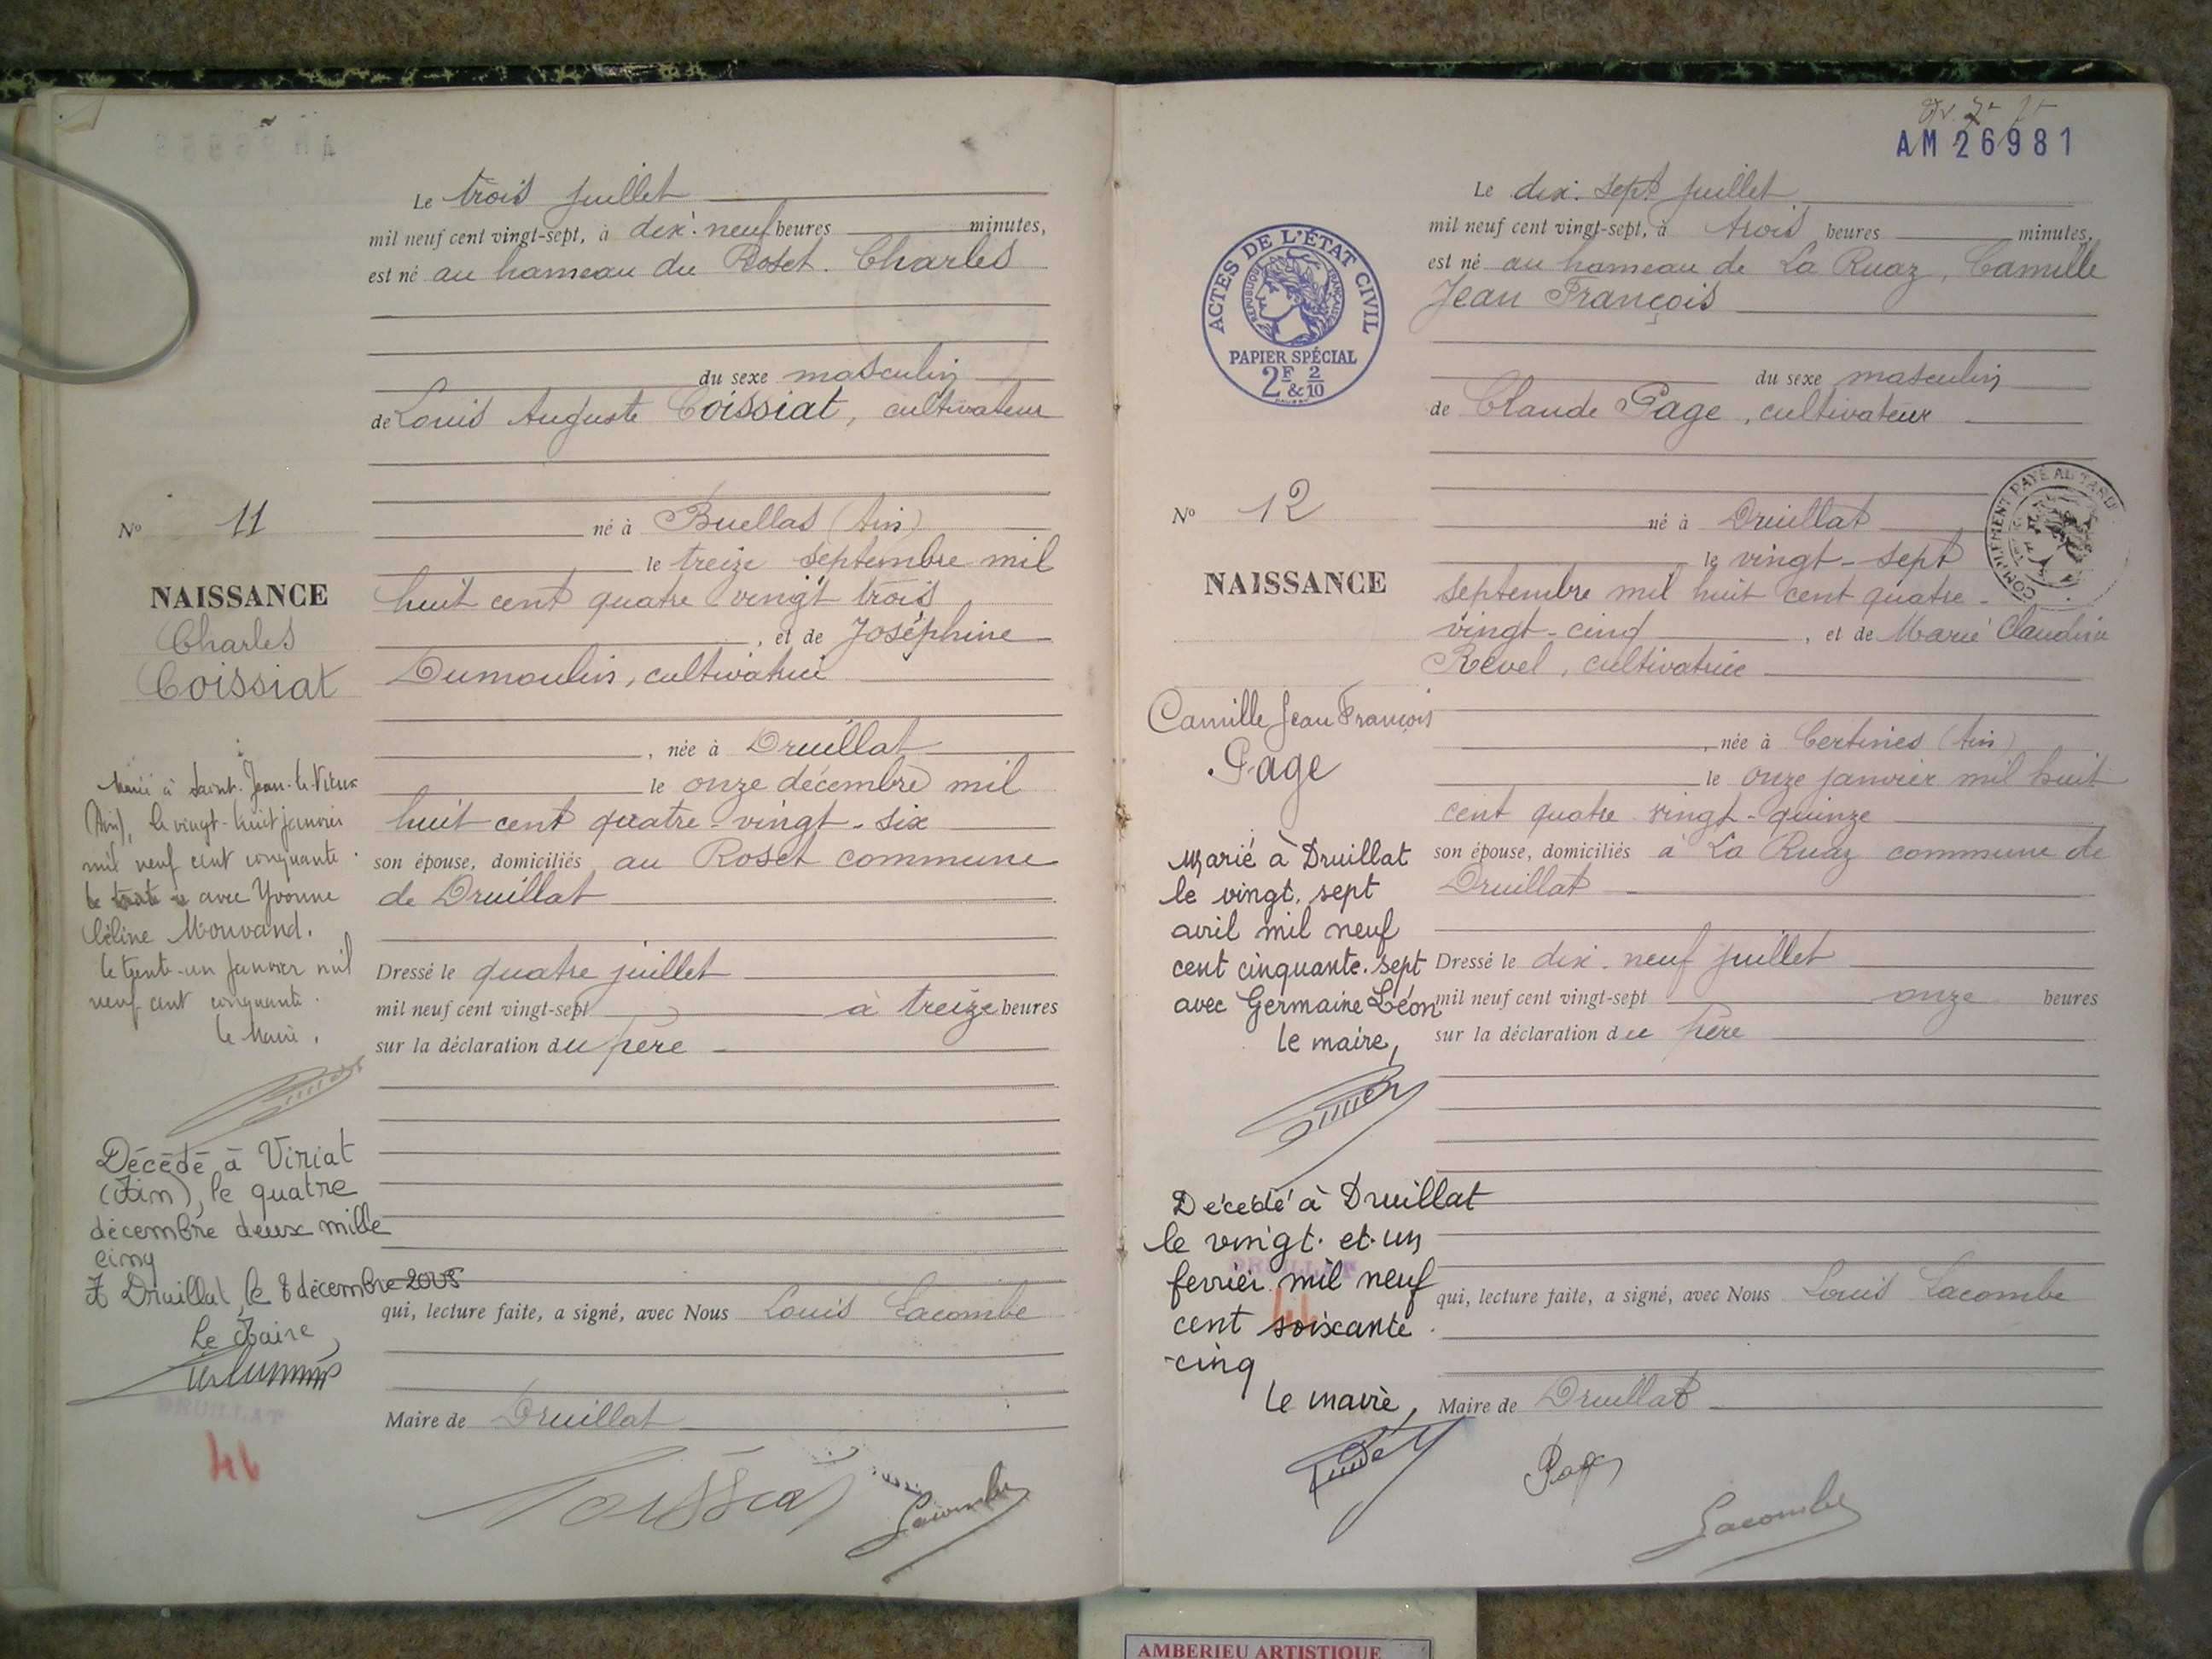 Le trois juillet
mil neuf cent vingt-sept, à dix-neuf heures minutes,
est né au hameau du Roset. Charles
du sexe masculin
de Louis Auguste Coissiat, cultivateur
né à Buellas (Ain)
le treize septembre mil
huit cent quatre vingt trois
, et de Joséphine
Dumoulin, cultivatrice
, née à Druillat
le onze décembre mil
huit cent quatre-vingt-six
son épouse, domiciliés au Roset commune
de Druillat
Dressé le quatre juillet
mil neuf cent vingt-sept à treize heures
sur la déclaration du père
qui, lecture faite, a signé, avec Nous Louis Lacombe
Maire de Druillat
Coissiat
Lacombe
No 11
NAISSANCE
Charles
Coissiat
Marié à Saint-Jean-le-Vieux
(Ain), le vingt-huit janvier
mil neuf cent cinquante
avec Yvonne
Céline Mouvand.
le trente-un janvier mil
neuf cent cinquante.
le Maire,
Décédé à Viriat
(Ain), le quatre
décembre deux mille
cinq
A Druillat, le 8 décembre 2005
Le Maire,
DRUILLAT
AM 26981
Le dix-sept juillet
mil neuf cent vingt-sept, à trois heures minutes,
est né au hameau de La Ruaz, Camille
Jean François
du sexe masculin
de Claude Page, cultivateur
né à Druillat
le vingt-sept
septembre mil huit cent quatre-
vingt-cinq , et de Marie Claudia
Revel, cultivatrice
, née à Certines (Ain)
le onze janvier mil huit
cent quatre vingt-quinze
son épouse, domiciliés à La Ruaz commune de
Druillat
Dressé le dix-neuf juillet
mil neuf cent vingt-sept onze heures
sur la déclaration du père
qui, lecture faite, a signé, avec Nous Louis Lacombe
Maire de Druillat
Page
Lacombe
ACTES DE L'ÉTAT CIVIL
RÉPUBLIQUE FRANÇAISE
PAPIER SPÉCIAL
2F & 2/10
COMPLÉMENT PAYÉ AU TARIF
No 12
NAISSANCE
Camille Jean François
Page
Marié à Druillat
le vingt-sept
avril mil neuf
cent cinquante-sept
avec Germaine Léon
le maire,
Décédé à Druillat
le vingt-et-un
DRUILLAT
fevrier mil neuf
cent soixante
-cinq
Le maire,
AMBERIEU ARTISTIQUE